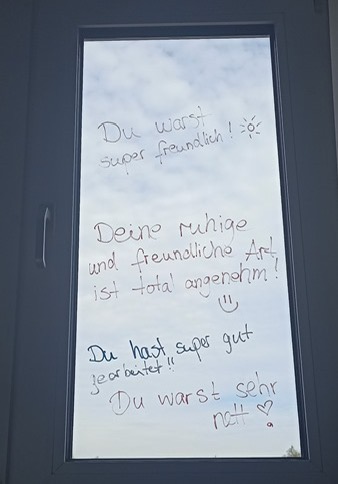 Du warst
super freundlich!
Deine ruhige
und freundliche Art
ist total angenehm!
Du hast super gut
gearbeitet!!
Du warst sehr
nett